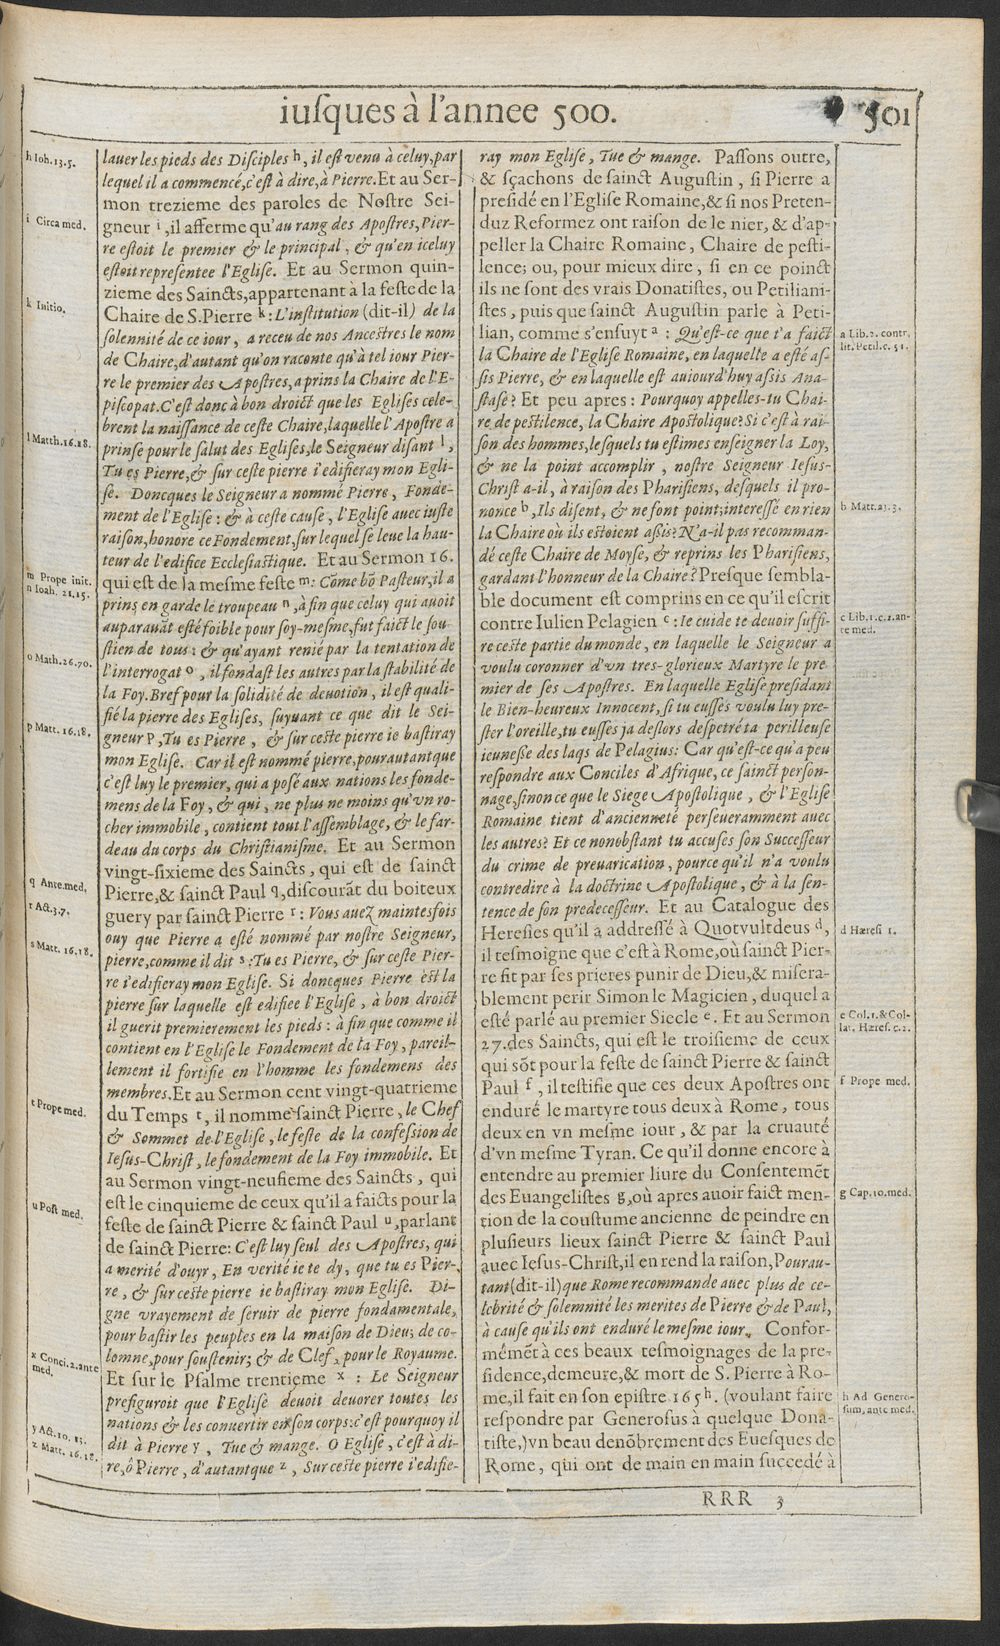 iusques à l'annee 500.
501
h Ioh. 13.5.
i Circa med.
k Initio.
l Matth. 16.18.
m Prope init.
n Ioah. 21.15.
o Math. 26.70.
p Matt. 16.18.
q Ante.med.
r Act. 3.7.
s Matt. 16.18.
t Prope med.
u Post med.
x Conci. 2. ante
med.
y Act. 10. 13.
z Matt. 16.18.
lauer les pieds des Disciples h, il est venu à celuy, par
lequel il a commencé, c'est à dire, à Pierre. Et au Ser-
mon trezieme des paroles de Nostre Sei-
gneur i, il afferme qu'au rang des Apostres, Pier-
re estoit le premier & le principal, & qu'en iceluy
estoit representee l'Eglise. Et au Sermon quin-
zieme des Saincts, appartenant à la feste de la
Chaire de S. Pierre k: L'institution (dit-il) de la
solennité de ce iour, a receu de nos Ancestres le nom
de Chaire, d'autant qu'on raconte qu'à tel iour Pier-
re le premier des Apostres, a prins la Chaire de l'E-
piscopat. C'est donc à bon droict que les Eglises cele-
brent la naissance de ceste Chaire, laquelle l'Apostre a
prinse pour le salut des Eglises, le Seigneur disant l,
Tu es Pierre, & sur ceste pierre i'edifieray mon Egli-
se. Doncques le Seigneur a nommé Pierre, Fonde-
ment de l'Eglise: & à ceste cause, l'Eglise auec iuste
raison, honore ce Fondement, sur lequel se leue la hau-
teur de l'edifice Ecclesiastique. Et au Sermon 16.
qui est de la mesme feste m: Cõme bõ Pasteur, il a
prins en garde le troupeau n, à fin que celuy qui auoit
auparauãt esté foible pour soy-mesme, fut faict le sou-
stien de tous: & qu'ayant renié par la tentation de
l'interrogat o, il fondast les autres par la stabilité de
la Foy. Bref pour la solidité de deuotion, il est quali-
fié la pierre des Eglises, suyuant ce que dit le Sei-
gneur p, Tu es Pierre, & sur ceste pierre ie bastiray
mon Eglise. Car il est nommé pierre, pourautant que
c'est luy le premier, qui a posé aux nations les fonde-
mens de la Foy, & qui, ne plus ne moins qu'vn ro-
cher immobile, contient tout l'assemblage, & le far-
deau du corps du Christianisme. Et au Sermon
vingt-sixieme des Saincts, qui est de sainct
Pierre, & sainct Paul q, discourãt du boiteux
guery par sainct Pierre r: Vous auez maintesfois
ouy que Pierre a esté nommé par nostre Seigneur,
pierre, comme il dit s: Tu es Pierre, & sur ceste Pier-
re i'edifieray mon Eglise. Si doncques Pierre est la
pierre sur laquelle est edifiee l'Eglise, à bon droict
il guerit premierement les pieds: à fin que comme il
contient en l'Eglise le Fondement de la Foy, pareil-
lement il fortifie en l'homme les fondemens des
membres. Et au Sermon cent vingt-quatrieme
du Temps t, il nomme sainct Pierre, le Chef
& Sommet de l'Eglise, le feste de la confession de
Iesus-Christ, le fondement de la Foy immobile. Et
au Sermon vingt-neufieme des Saincts, qui
est le cinquieme de ceux qu'il a faicts pour la
feste de sainct Pierre & sainct Paul u, parlant
de sainct Pierre: C'est luy seul des Apostres, qui
a merité d'ouyr, En verité ie te dy, que tu es Pier-
re, & sur ceste pierre ie bastiray mon Eglise. Di-
gne vrayement de seruir de pierre fondamentale,
pour bastir les peuples en la maison de Dieu; de co-
lomne, pour soustenir; & de Clef, pour le Royaume.
Et sur le Psalme trentieme x: Le Seigneur
prefiguroit que l'Eglise deuoit deuorer toutes les
nations & les conuertir en son corps: c'est pourquoy il
dit à Pierre y, Tue & mange. O Eglise, c'est à di-
re, ô Pierre, d'autant que z, Sur ceste pierre i'edifie-
ray mon Eglise, Tue & mange. Passons outre,
& sçachons de sainct Augustin, si Pierre a
presidé en l'Eglise Romaine, & si nos Preten-
duz Reformez ont raison de le nier, & d'ap-
peller la Chaire Romaine, Chaire de pesti-
lence; ou, pour mieux dire, si en ce poinct
ils ne sont des vrais Donatistes, ou Petiliani-
stes, puis que sainct Augustin parle à Peti-
lian, comme s'ensuyt a: Qu'est-ce que t'a faict
la Chaire de l'Eglise Romaine, en laquelle a esté as-
sis Pierre, & en laquelle est auiourd'huy assis Ana-
stase? Et peu apres: Pourquoy appelles-tu Chai-
re de pestilence, la Chaire Apostolique? Si c'est à rai-
son des hommes, lesquels tu estimes enseigner la Loy,
& ne la point accomplir, nostre Seigneur Iesus-
Christ a-il, à raison des Pharisiens, desquels il pro-
nonce b, Ils disent, & ne font point; interessé en rien
la Chaire où ils estoient assis? N'a-il pas recomman-
dé ceste Chaire de Moyse, & reprins les Pharisiens,
gardant l'honneur de la Chaire? Presque sembla-
ble document est comprins en ce qu'il escrit
contre Iulien Pelagien c: Ie cuide te deuoir suffi-
re ceste partie du monde, en laquelle le Seigneur a
voulu coronner d'vn tres-glorieux Martyre le pre
mier de ses Apostres. En laquelle Eglise presidant
le Bien-heureux Innocent, si tu eusses voulu luy pre-
ster l'oreille, tu eusses ja deslors despetré ta perilleuse
ieunesse des laqs de Pelagius: Car qu'est-ce qu'a peu
respondre aux Conciles d'Afrique, ce sainct person-
nage, sinon ce que le Siege Apostolique, & l'Eglise
Romaine tient d'ancienneté perseueramment auec
les autres? Et ce nonobstant tu accuses son Successeur
du crime de preuarication, pource qu'il n'a voulu
contredire à la doctrine Apostolique, & à la sen-
tence de son predecesseur. Et au Catalogue des
Heresies qu'il a addressé à Quotvultdeus d,
il tesmoigne que c'est à Rome, où sainct Pier-
re fit par ses prieres punir de Dieu, & misera-
blement perir Simon le Magicien, duquel a
esté parlé au premier Siecle e. Et au Sermon
27. des Saincts, qui est le troisieme de ceux
qui sõt pour la feste de sainct Pierre & sainct
Paul f, il testifie que ces deux Apostres ont
enduré le martyre tous deux à Rome, tous
deux en vn mesme iour, & par la cruauté
d'vn mesme Tyran. Ce qu'il donne encore à
entendre au premier liure du Consentemẽt
des Euangelistes g, où apres auoir faict men-
tion de la coustume ancienne de peindre en
plusieurs lieux sainct Pierre & sainct Paul
auec Iesus-Christ, il en rend la raison, Pourau-
tant (dit-il) que Rome recommande auec plus de ce-
lebrité & solemnité les merites de Pierre & de Paul,
à cause qu'ils ont enduré le mesme iour. Confor-
mémẽt à ces beaux tesmoignages de la pre-
sidence, demeure, & mort de S. Pierre à Ro-
me, il fait en son epistre 165 h. (voulant faire
respondre par Generosus à quelque Dona-
tiste,) vn beau denõbrement des Euesques de
Rome, qui ont de main en main succedé à
a Lib. 2. contr.
lit. Petil. c. 51.
b Matt. 23. 3.
c Lib. 1. c. 2. an-
te med.
d Hæresi 1.
e Col. 1. & Col-
lat. Hæres. c. 2.
f Prope med.
g Cap. 10. med.
h Ad Genero-
sum, ante med.
RRR 3